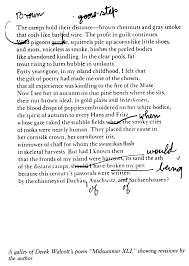 Brown goose-step
The camps hold their distance—brown chestnuts and gray smoke
that coils like barbed wire. The profit in guilt continues
wild pigeons gurgle, squirrels pile up acorns like little shoes,
and moss, voiceless as smoke, hushes the peeled bodies
like abandoned kindling. In the clear pools, fat
trout rising to lures bubble in umlauts.
Forty years gone, in my island childhood, I felt that
the gift of poetry had made me one of the chosen,
that all experience was kindling to the fire of the Muse.
Now I see her in autumn on that pine bench where she sits,
their nut-brown ideal, in gold plaits and lederhosen,
the blood drops of poppies embroidered on her white bodice,
the spirit of autumn to every Hans and Fritz
whose gaze raked the stubble fields when the smoky cries
of rooks were nearly human. They placed their cause in
her cornsilk crown, her cornflower iris,
winnower of chaff for whom the swastikas flash
in skeletal harvests. But had I known then
that the fronds of my island were harrows, its sand the ash
of the distant camps, would I have broken my pen
because this century's pastorals were being written
by the chimneys of Dachau, of Auschwitz, of Sachsenhausen?
A galley of Derek Walcott's poem "Midsummer XLI," showing revisions by
the author